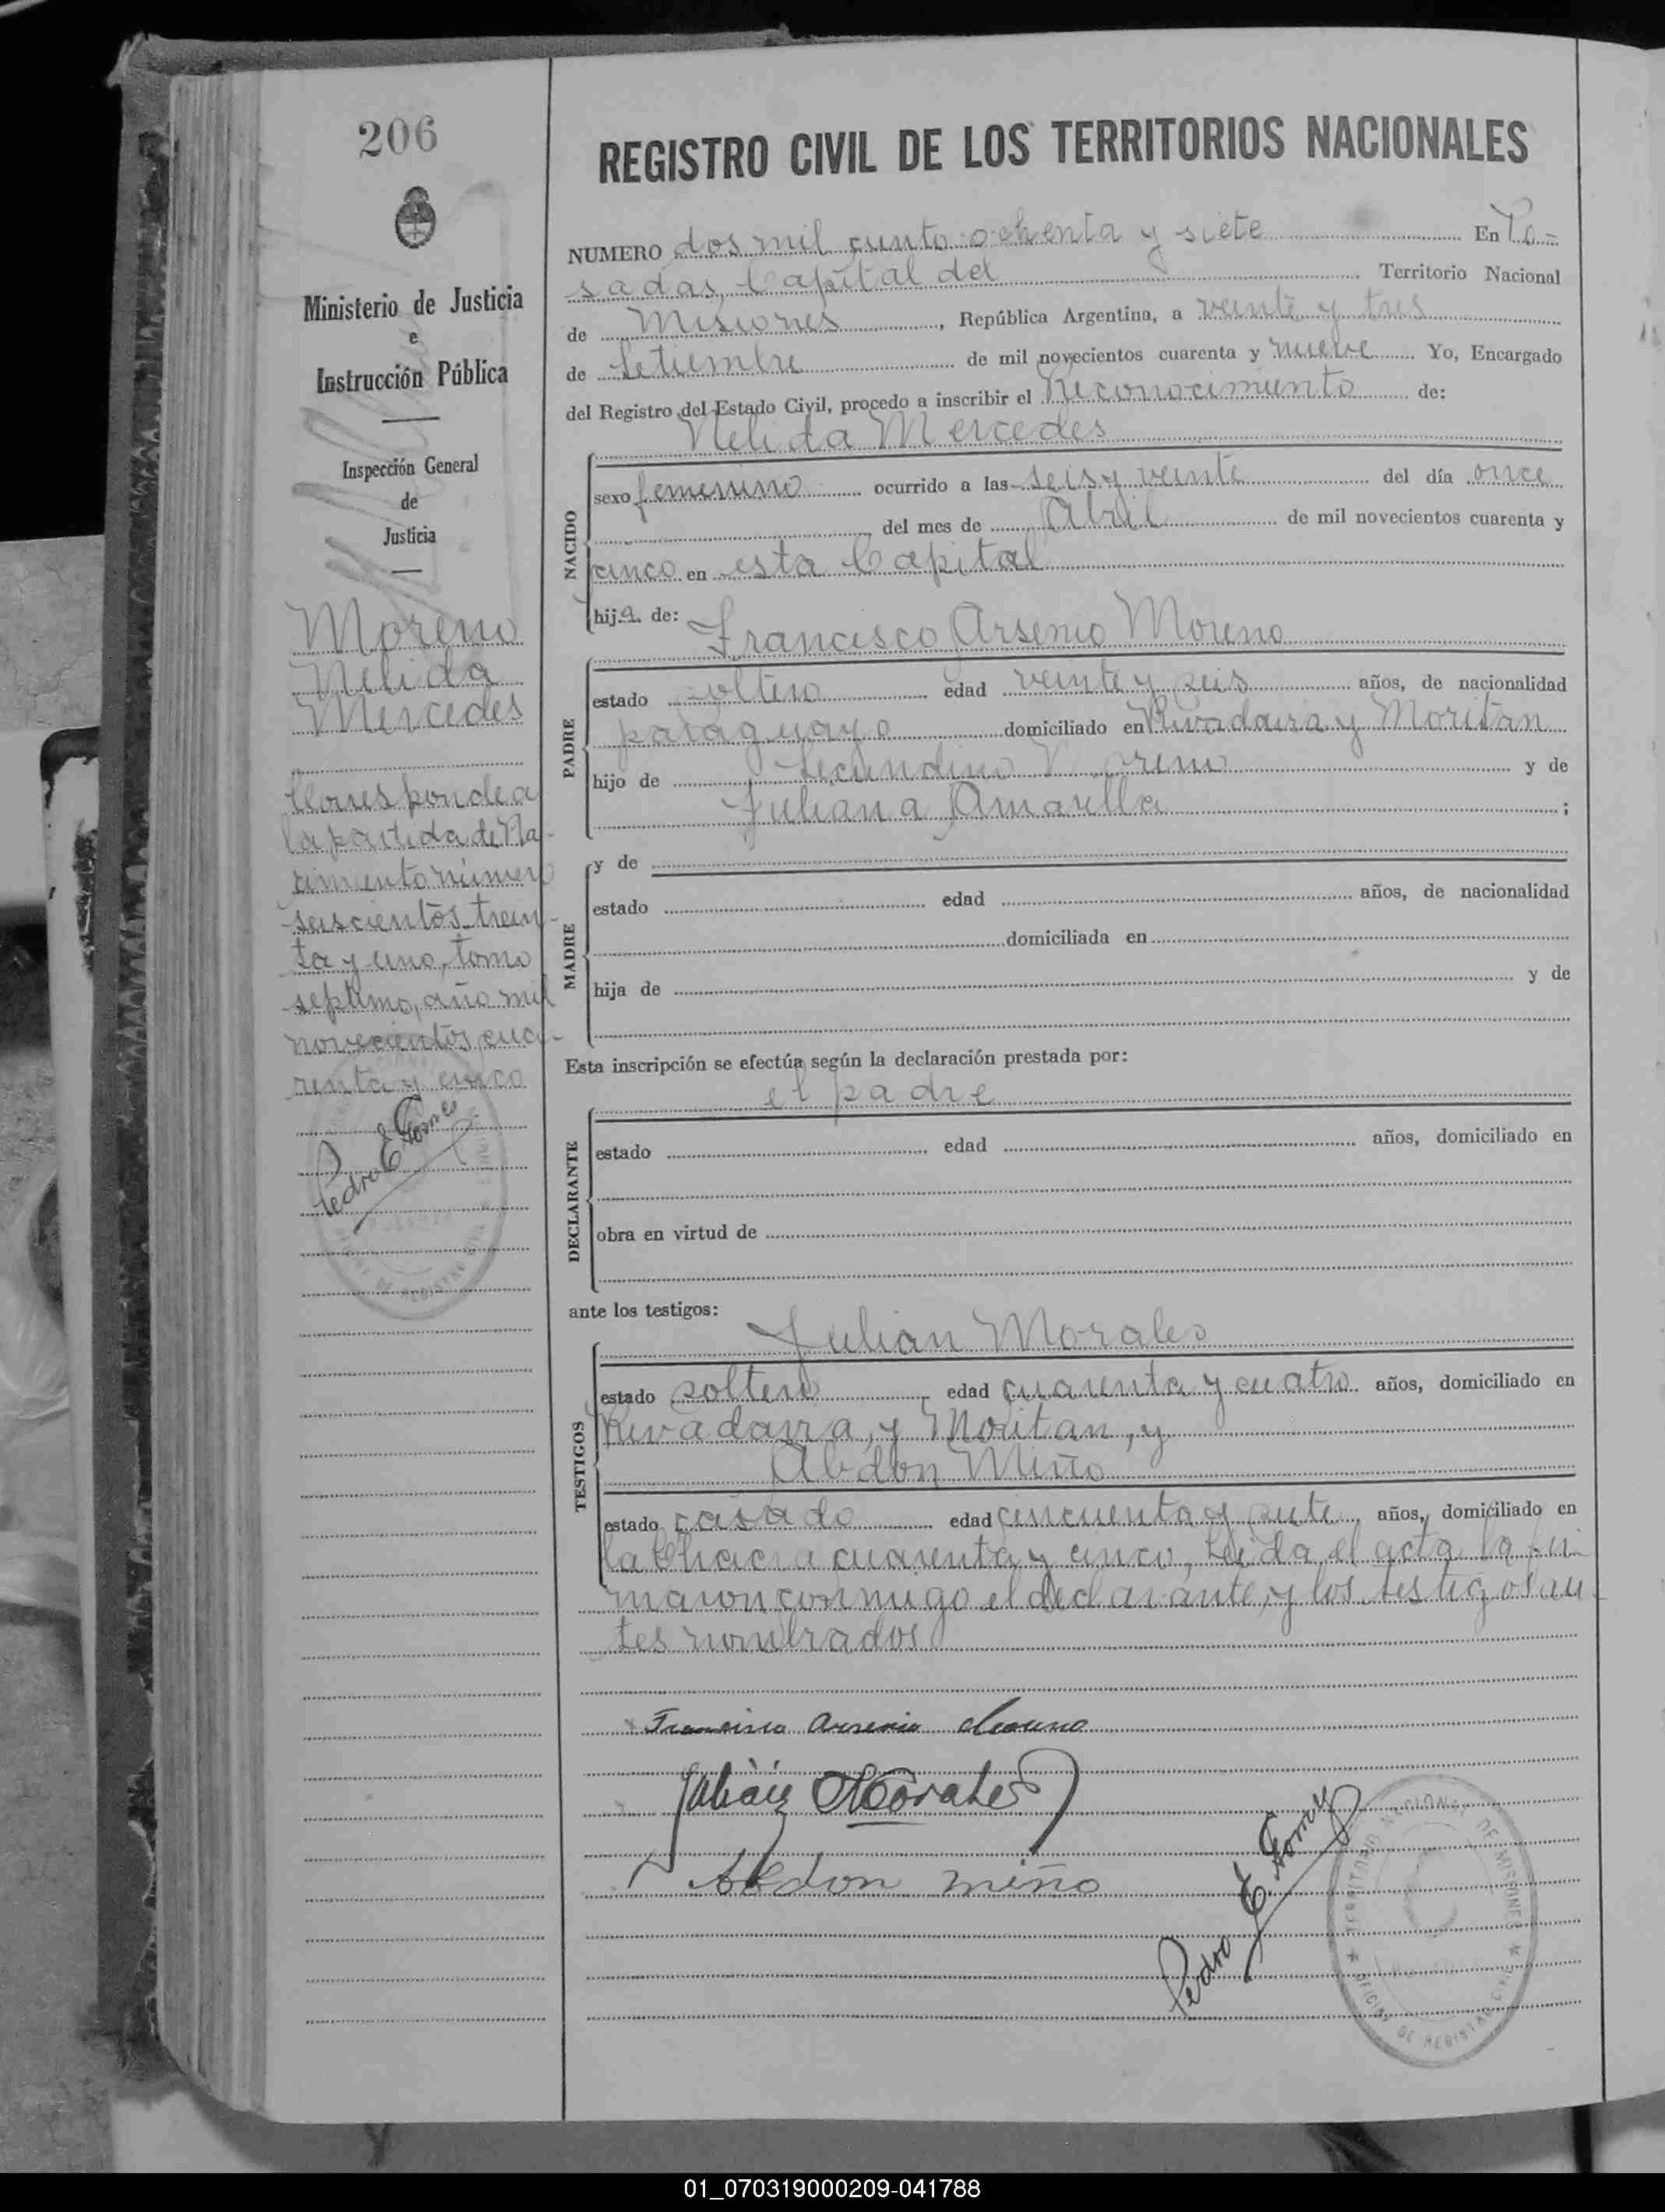 206
Ministerio de Justicia
e
Instrucción Pública
Inspección General
de
Justicia
Moreno
Nelida
Mercedes
Corresponde a
la partida de Na-
cimiento número
seiscientos trein-
ta y uno, tomo
septimo, año mil
novecientos cua-
renta y cinco
Pedro E Gomez
REGISTRO CIVIL DE LOS TERRITORIOS NACIONALES
NUMERO dos mil ciento ochenta y siete En Po-
sadas, Capital del Territorio Nacional
de Misiones, República Argentina, a veinte y tres
de Setiembre de mil novecientos cuarenta y nueve Yo, Encargado
del Registro del Estado Civil, procedo a inscribir el Reconocimiento de:
Nelida Mercedes
NACIDO
sexo femenino ocurrido a las seis y veinte del día once
del mes de Abril de mil novecientos cuarenta y
cinco en esta Capital
hija. de: Francisco Arsenio Moreno
PADRE
estado soltero edad veinte y seis años, de nacionalidad
paraguayo domiciliado en Rivadavia y Moritán
hijo de Secundino Moreno y de
Juliana Amarilla ;
MADRE
y de
estado edad años, de nacionalidad
domiciliada en
hija de y de
Esta inscripción se efectúa según la declaración prestada por:
el padre
DECLARANTE
estado edad años, domiciliado en
obra en virtud de
ante los testigos:
Julian Morales
TESTIGOS
estado soltero edad cuarenta y cuatro años, domiciliado en
Rivadavia, y Moritan, y
Abdon Miño
estado casado edad cincuenta y siete años, domiciliado en
la Chacra cuarenta y cinco, Leida el acta la fir-
maron conmigo el declarante, y los testigos an-
tes nombrados
Francisco Arsenio Moreno
Julian Morales
Abdon miño
Pedro E. Gomez
TERRITORIO NACIONAL DE MISIONES ★ OFICINA DE REGISTRO CIVIL ★
01_070319000209-041788